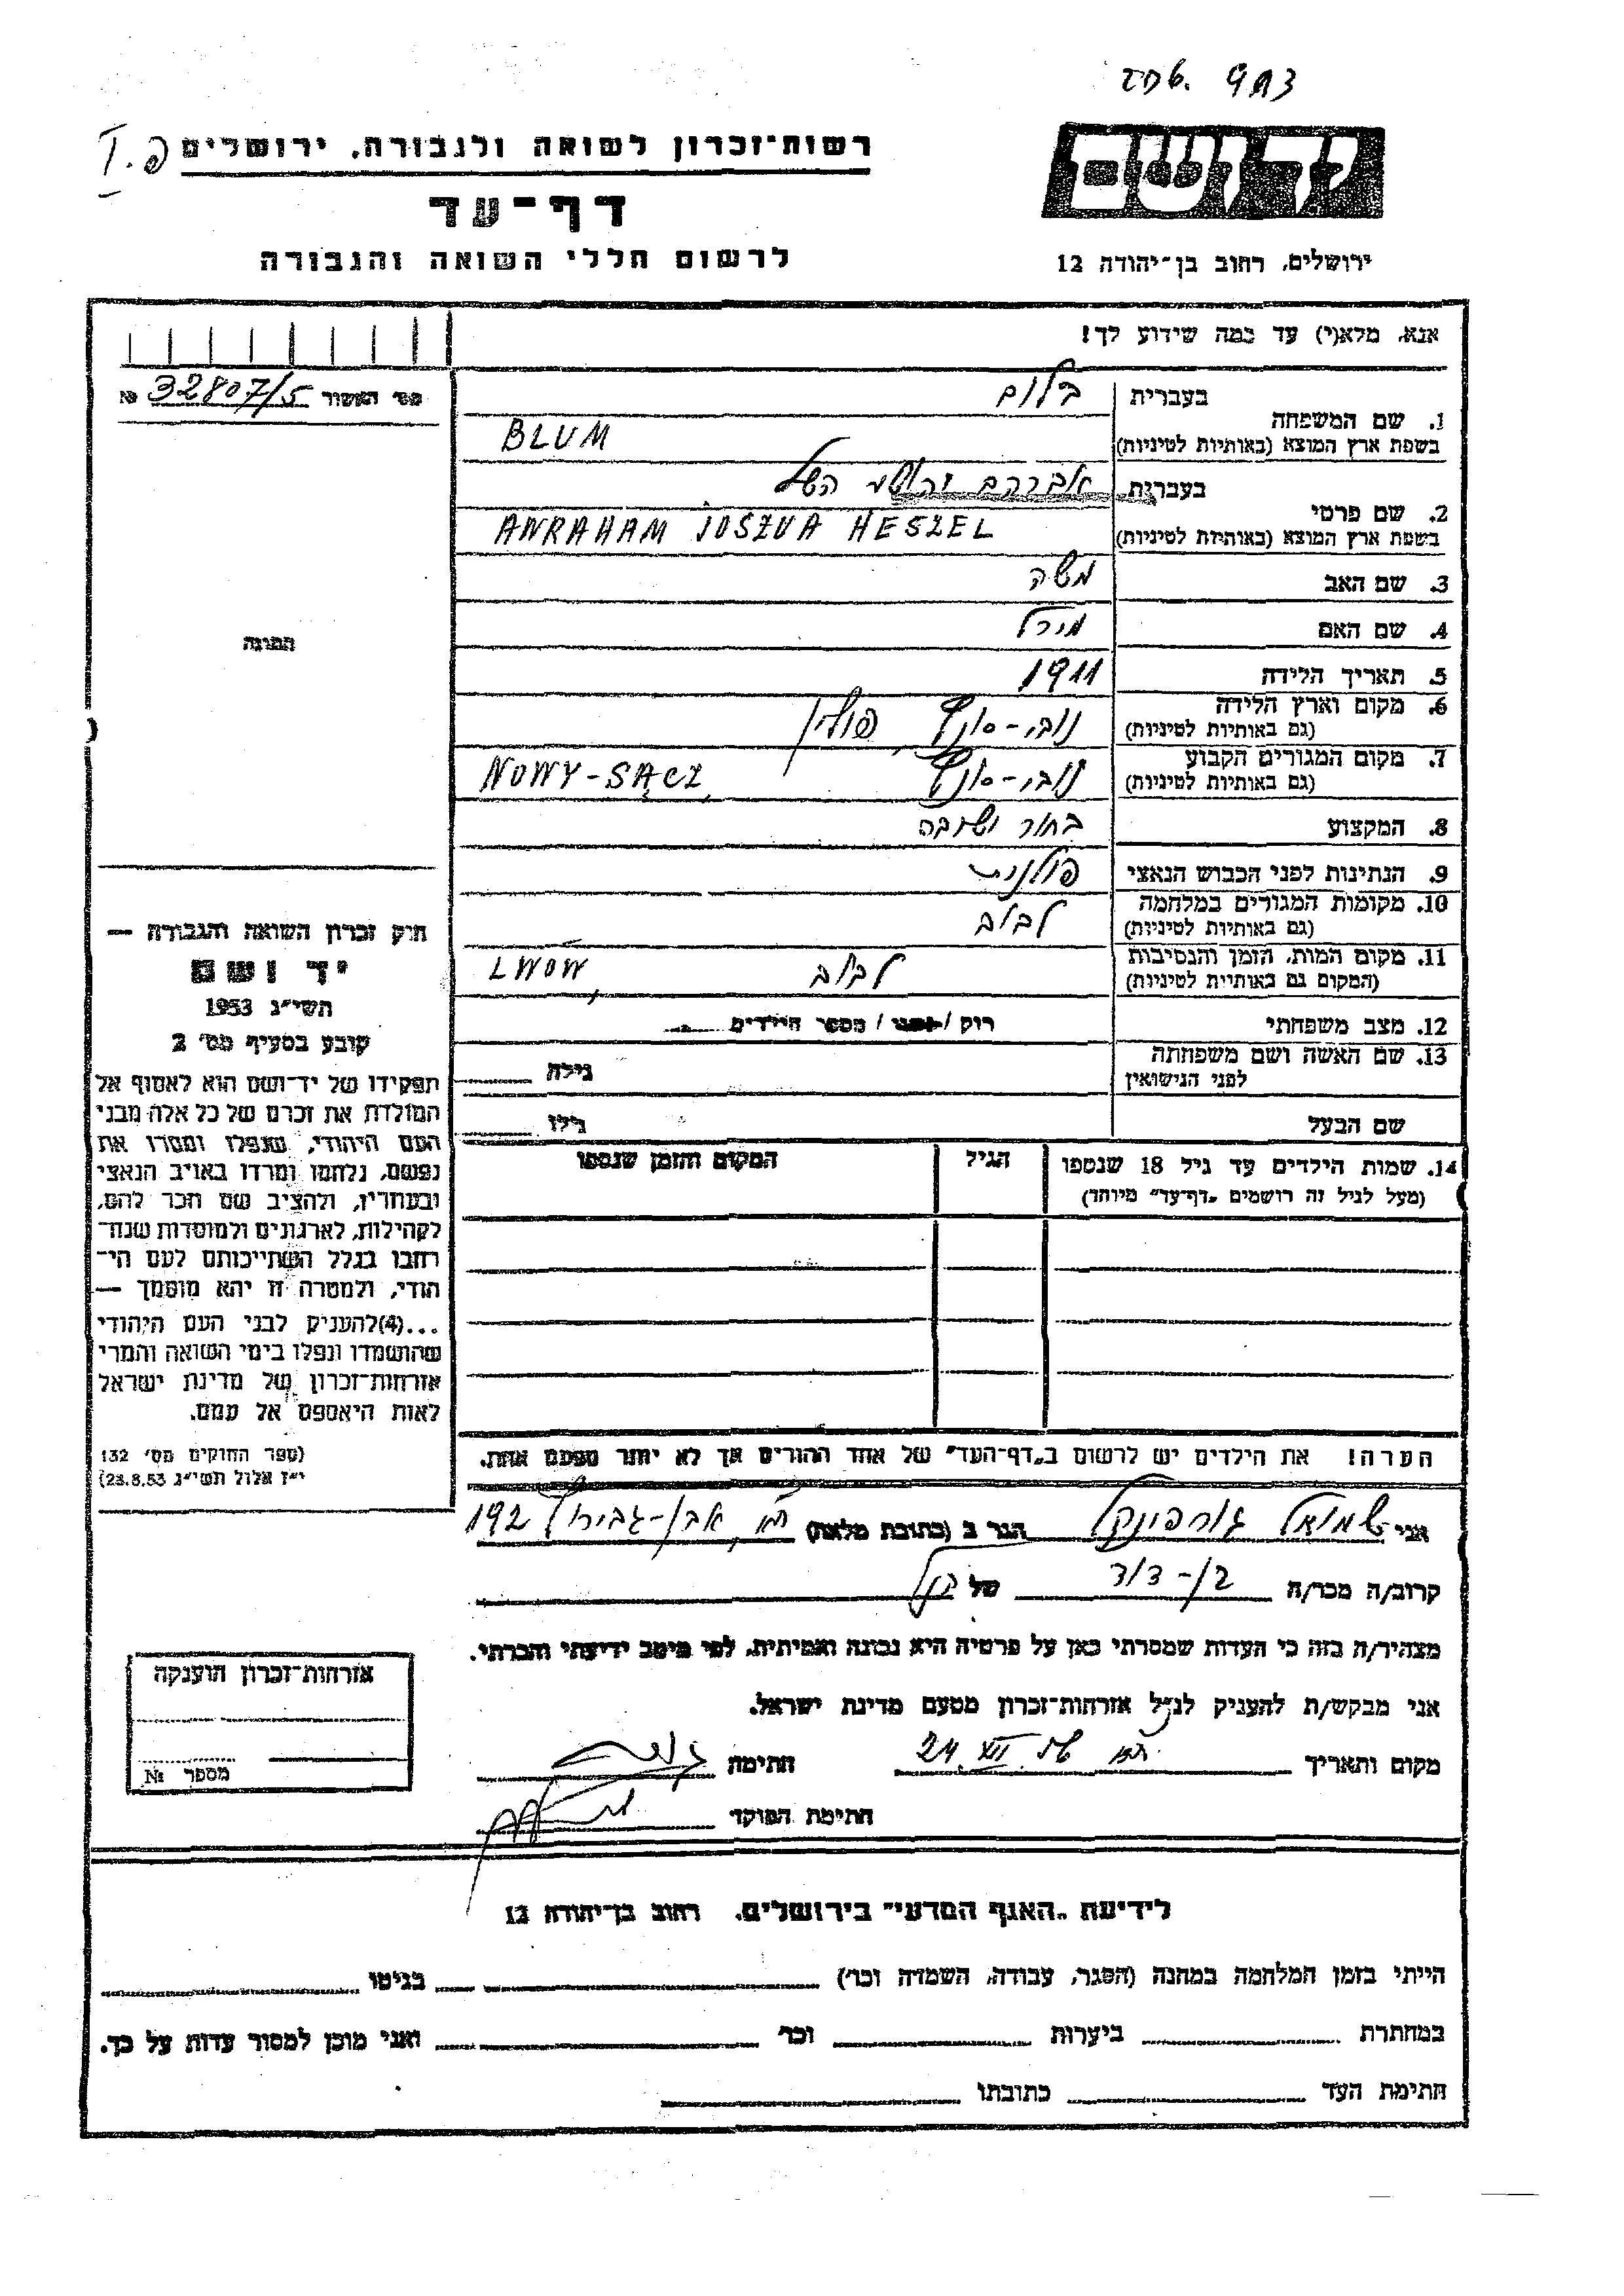 רשות־זכרון לשואה ולגבורה, ירושלים
דף-עד
לרשום חללי השואה והגבורה
יד ושם
ירושלים, רחוב בן־יהודה 12
אנא, מלא(י) עד כמה שידוע לך!
מס' האשור № 32807/5
התמונה
בעברית בלום
1. שם המשפחה
בשפת ארץ המוצא (באותיות לטיניות) BLUM
בעברית אברהם יהושע השל
2. שם פרטי
בשפת ארץ המוצא (באותיות לטיניות) AWRAHAM JOSZUA HESZEL
3. שם האב משה
4. שם האם מירל
5. תאריך הלידה 1911
6. מקום וארץ הלידה נובי-סונץ פולין
(גם באותיות לטיניות)
7. מקום המגורים הקבוע נובי-סונץ NOWY-SĄCZ
(גם באותיות לטיניות)
8. המקצוע בחור ישיבה
9. הנתינות לפני הכבוש הנאצי פולנית
10. מקומות המגורים במלחמה לבוב
(גם באותיות לטיניות)
11. מקום המות, הזמן והנסיבות לבוב LWÓW
(המקום גם באותיות לטיניות)
12. מצב משפחתי רוק / נשוי / מספר הילדים
13. שם האשה ושם משפחתה גילה
לפני הנישואין
שם הבעל גילו
14. שמות הילדים עד גיל 18 שנספו הגיל המקום והזמן שנספו
(מעל לגיל זה רושמים „דף־עד" מיוחד)
הערה! את הילדים יש לרשום ב„דף-העד" של אחד ההורים אך לא יותר מפעם אחת.
חוק זכרון השואה והגבורה —
יד ושם
תשי"ג 1953
קובע בסעיף מס' 2
תפקידו של יד־ושם הוא לאסוף אל
המולדת את זכרם של כל אלה מבני
העם היהודי, שנפלו ומסרו את
נפשם, נלחמו ומרדו באויב הנאצי
ובעוזריו, ולהציב שם וזכר להם,
לקהילות, לארגונים ולמוסדות שנח־
רבו בגלל השתייכותם לעם הי־
הודי, ולמטרה זו יהא מוסמך —
...(4)להעניק לבני העם היהודי
שהושמדו ונפלו בימי השואה והמרי
אזרחות-זכרון של מדינת ישראל
לאות היאספם אל עמם.
(ספר החוקים מס' 132
י"ז אלול תשי"ג 28.8.53)
אני שמואל גורפינקל הגר ב (כתובת מלאה) ת"א, אבן-גבירול 192
קרוב/ה מכר/ה בן-דוד של הנ"ל
מצהיר/ה בזה כי העדות שמסרתי כאן על פרטיה היא נכונה ואמיתית, לפי מיטב ידיעתי והכרתי.
אני מבקש/ת להעניק לנ"ל אזרחות־זכרון מטעם מדינת ישראל.
מקום ותאריך חתימה
חתימת הפוקד
אזרחות־זכרון הוענקה
מספר №
לידיעת „האגף המדעי" בירושלים, רחוב בן־יהודה 12
הייתי בזמן המלחמה במחנה (הסגר, עבודה, השמדה וכר') בגיטו
במחתרת ביערות וכר' ואני מוכן למסור עדות על כך.
חתימת העד כתובתו